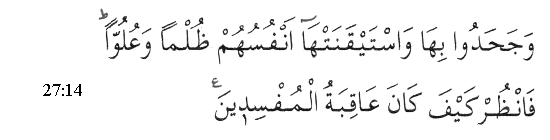 وَجَحَدُوا بِهَا وَاسْتَيْقَنَتْهَآ اَنْفُسُهُمْ ظُلْماً وَعُلُوّاً ؕ
27:14 فَانْظُرْ كَيْفَ كَانَ عَاقِبَةُ الْمُفْسِدِينَ ۟ع